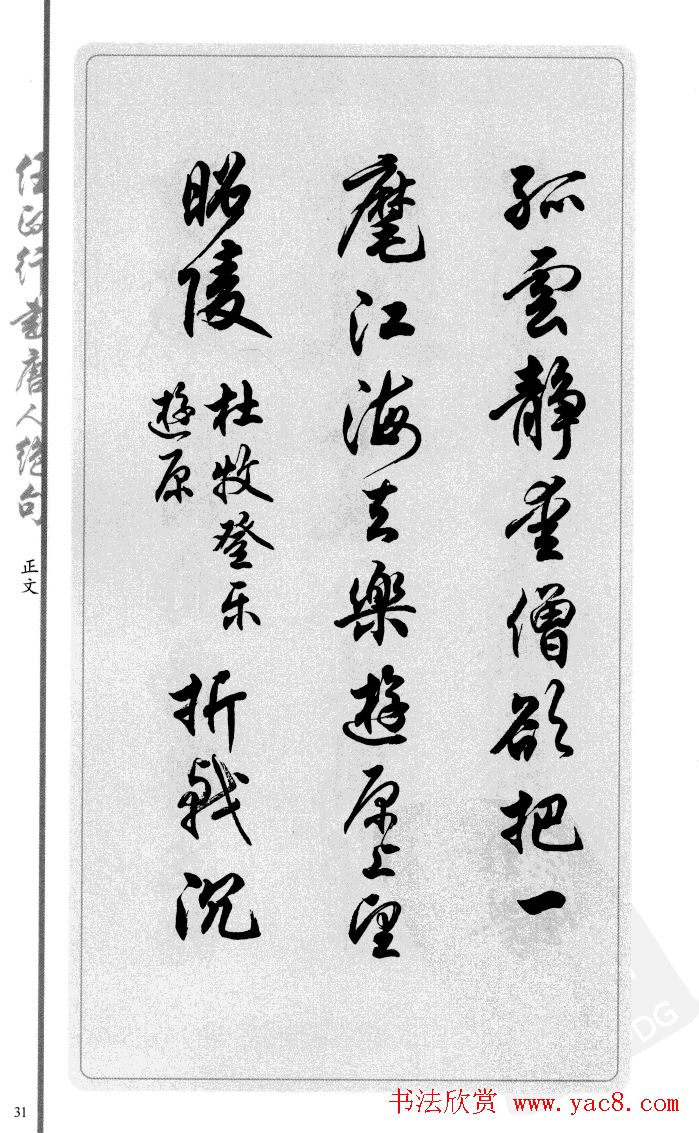 孤雲静愛僧欲把一
麾江海去樂遊原上望
昭陵
杜牧登乐
遊原
折戟沉
任政行書唐人绝句
正文
31
书法欣赏 www.yac8.com